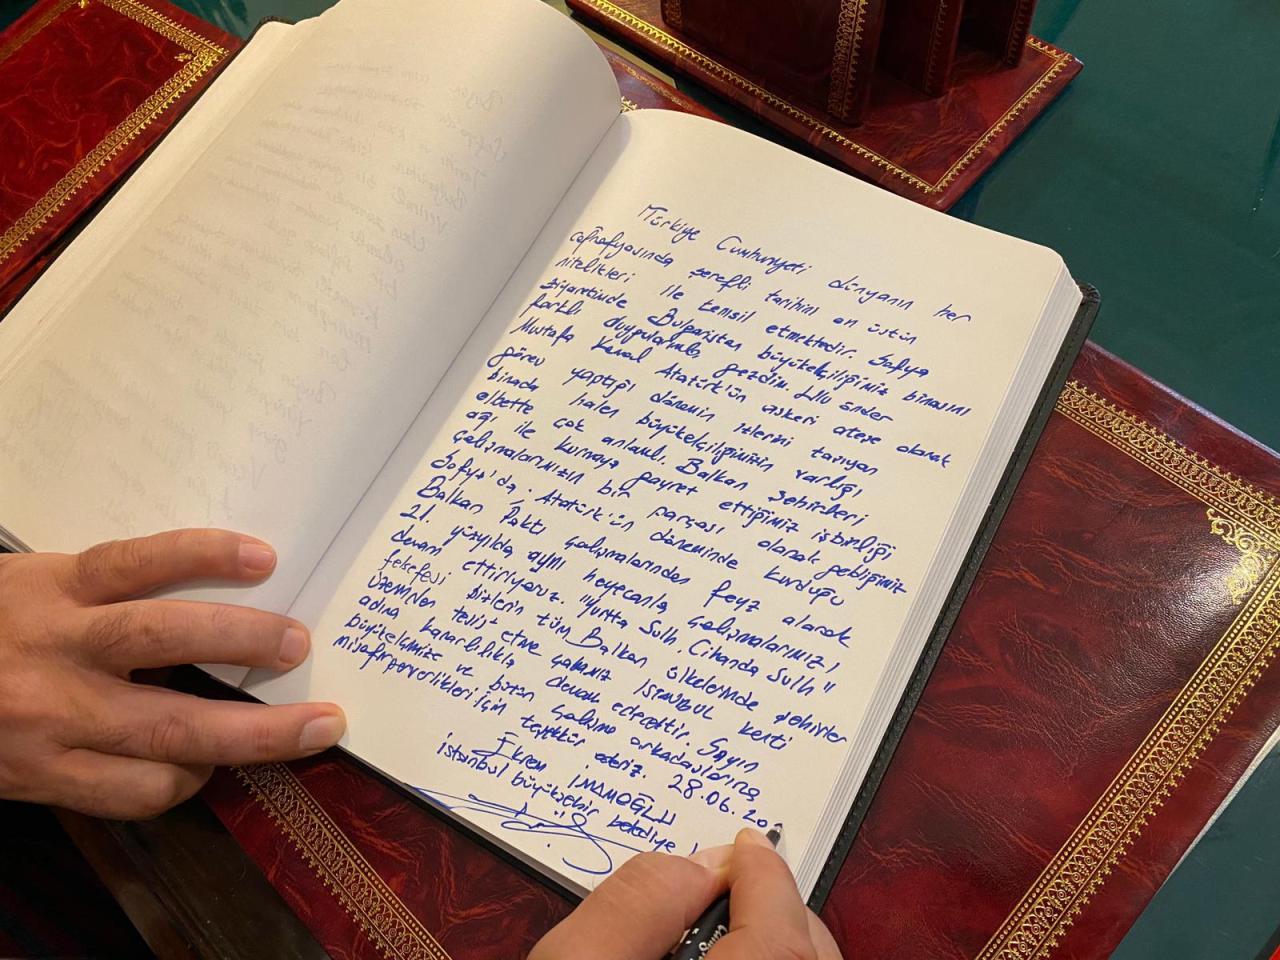 Türkiye Cumhuriyeti dünyanın her
coğrafyasında şerefli tarihini en üstün
nitelikleri ile temsil etmektedir. Sofya
ziyaretimde Bulgaristan büyükelçiliğimiz binasını
farklı duygularımla gezdim. Ulu önder
Mustafa Kemal Atatürk'ün askeri ateşe olarak
görev yaptığı dönemin izlerini taşıyan
binada halen büyükelçiliğimizin varlığı
elbette çok anlamlı. Balkan şehirleri
ağı ile kurmaya gayret ettiğimiz işbirliği
çalışmalarımızın bir parçası olarak geldiğimiz
Sofya'da, Atatürk'ün döneminde kurduğu
Balkan Paktı çalışmalarından feyz alarak
21. yüzyılda aynı heyecanla çalışmalarımızı
devam ettiriyoruz. "Yurtta Sulh, Cihanda Sulh"
felsefesi bizlerin tüm Balkan ülkelerinde şehirler
üzerinden tesis etme çabamız İSTANBUL kenti
adına kararlılıkla devam edecektir. Sayın
büyükelçimize ve bütün çalışma arkadaşlarına
misafirperverlikleri için teşekkür ederiz. 28.06.20
Ekrem İMAMOĞLU
İstanbul büyükşehir belediye